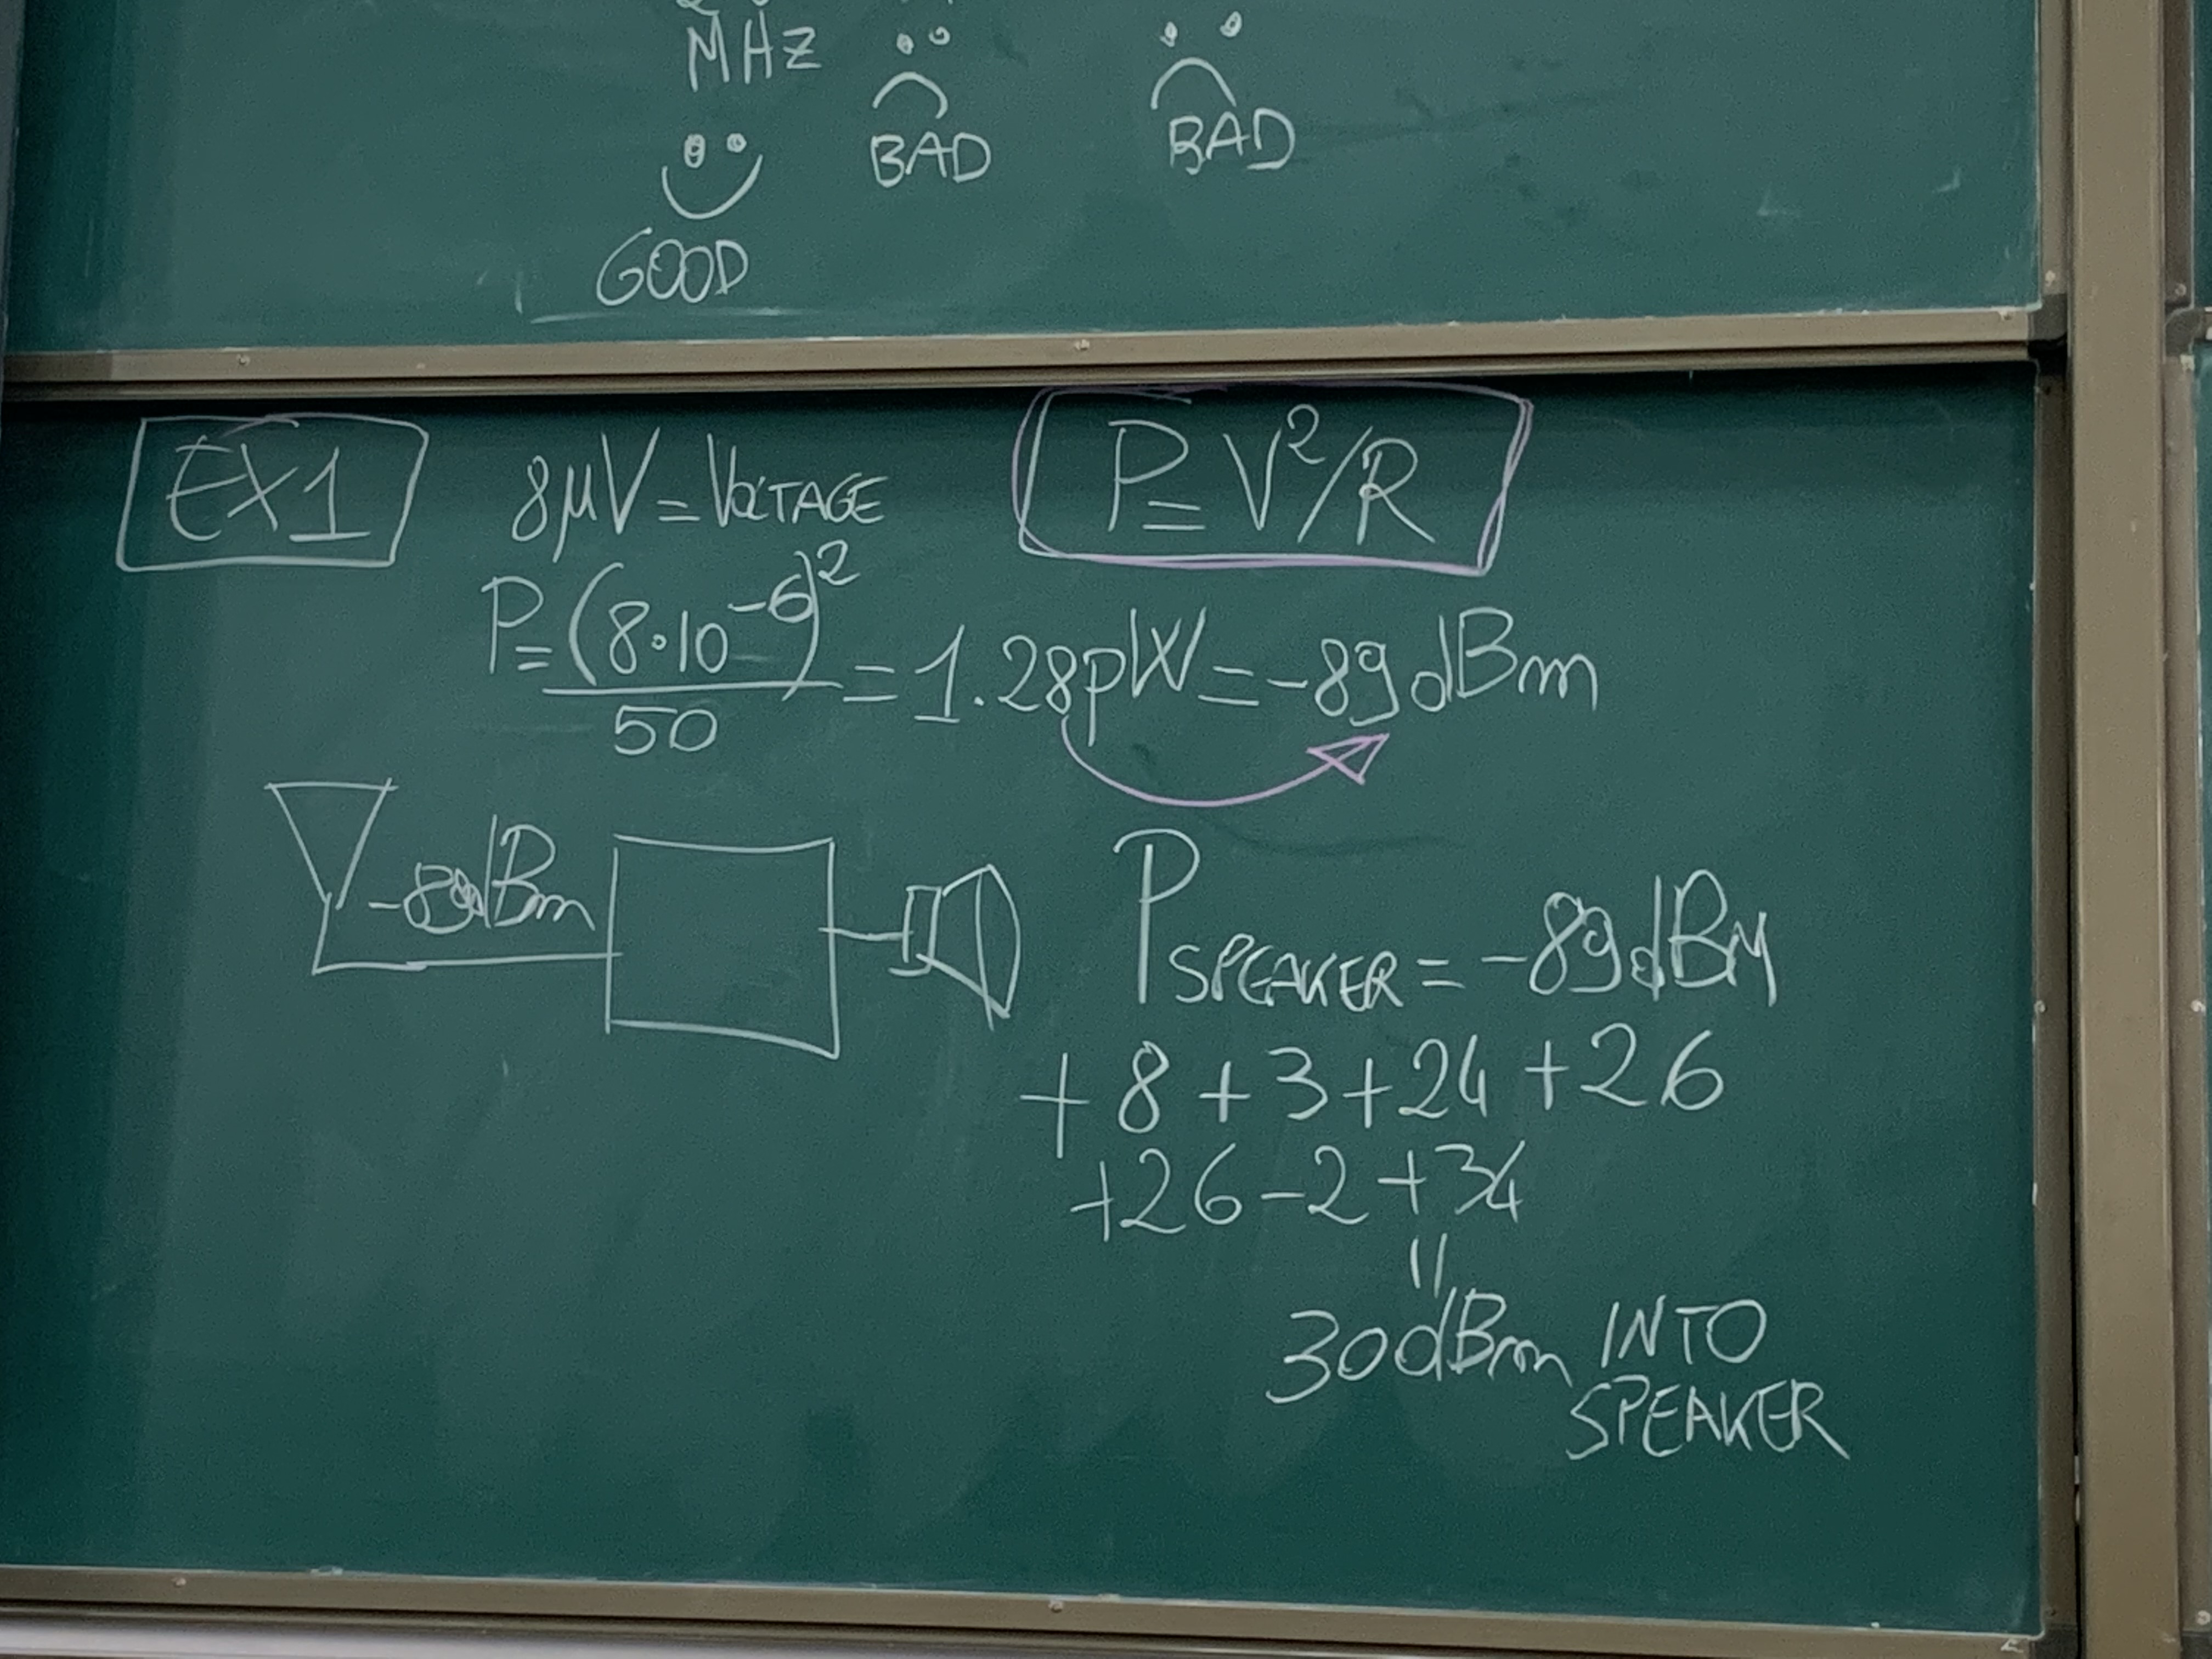 MHz
BAD
BAD
GOOD
EX1
8μV = VOLTAGE
P = V²/R
P = (8·10⁻⁶)² / 50 = 1.28pW = -89dBm
-89dBm
P SPEAKER = -89dBm
+ 8 + 3 + 24 + 26
+26 - 2 + 34
=
30dBm INTO
SPEAKER